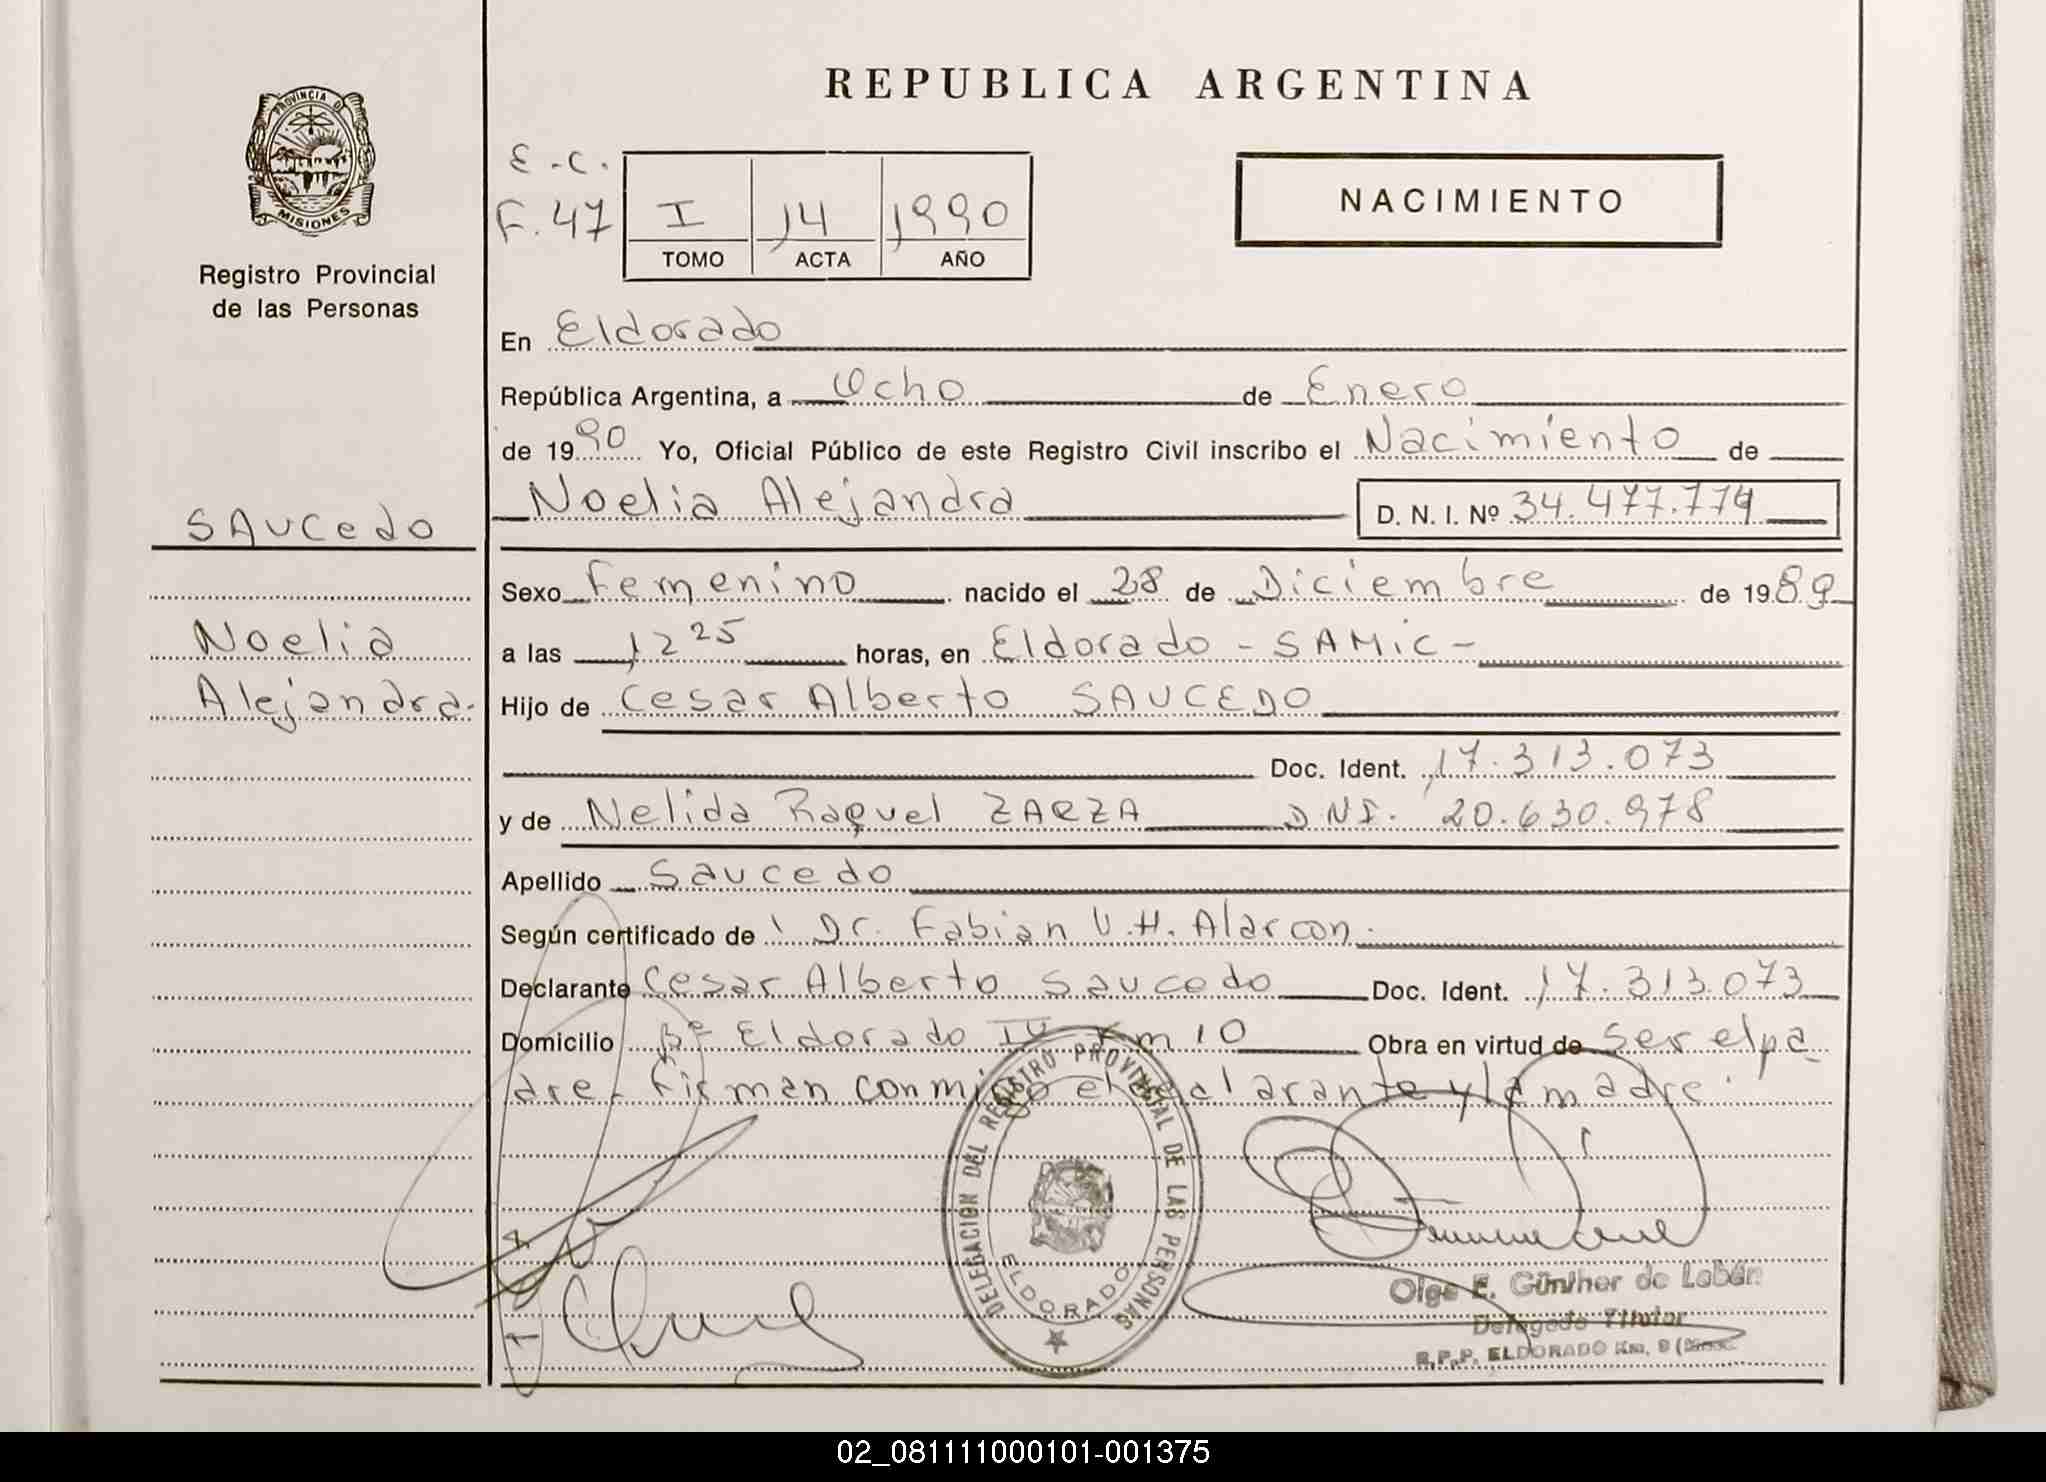 REPUBLICA ARGENTINA
PROVINCIA DE
MISIONES
Registro Provincial
de las Personas
E.C.
F. 47
I 14 1990
TOMO ACTA AÑO
NACIMIENTO
En Eldorado
República Argentina, a Ocho de Enero
de 1990 Yo, Oficial Público de este Registro Civil inscribo el Nacimiento de
Noelia Alejandra D. N. I. Nº 34.477.774
SAUCEDO
Noelia
Alejandra.
Sexo Femenino nacido el 28 de Diciembre de 1989
a las 12 25 horas, en Eldorado - SAMIC -
Hijo de Cesar Alberto SAUCEDO
Doc. Ident. 17.313.073
y de Nelida Raquel ZARZA D.N.I. 20.630.978
Apellido Saucedo
Según certificado de Dr. Fabian V.H. Alarcon.
Declarante Cesar Alberto Saucedo Doc. Ident. 17.313.073
Domicilio Bº Eldorado IV Km 10 Obra en virtud de ser el pa
dre. Firman conmigo el declarante y la madre.
DELEGACION DEL REGISTRO PROVINCIAL DE LAS PERSONAS
ELDORADO
Olga E. Günther de Labán
Delegada Titular
R.P.P. ELDORADO Km. 9
02_081111000101-001375